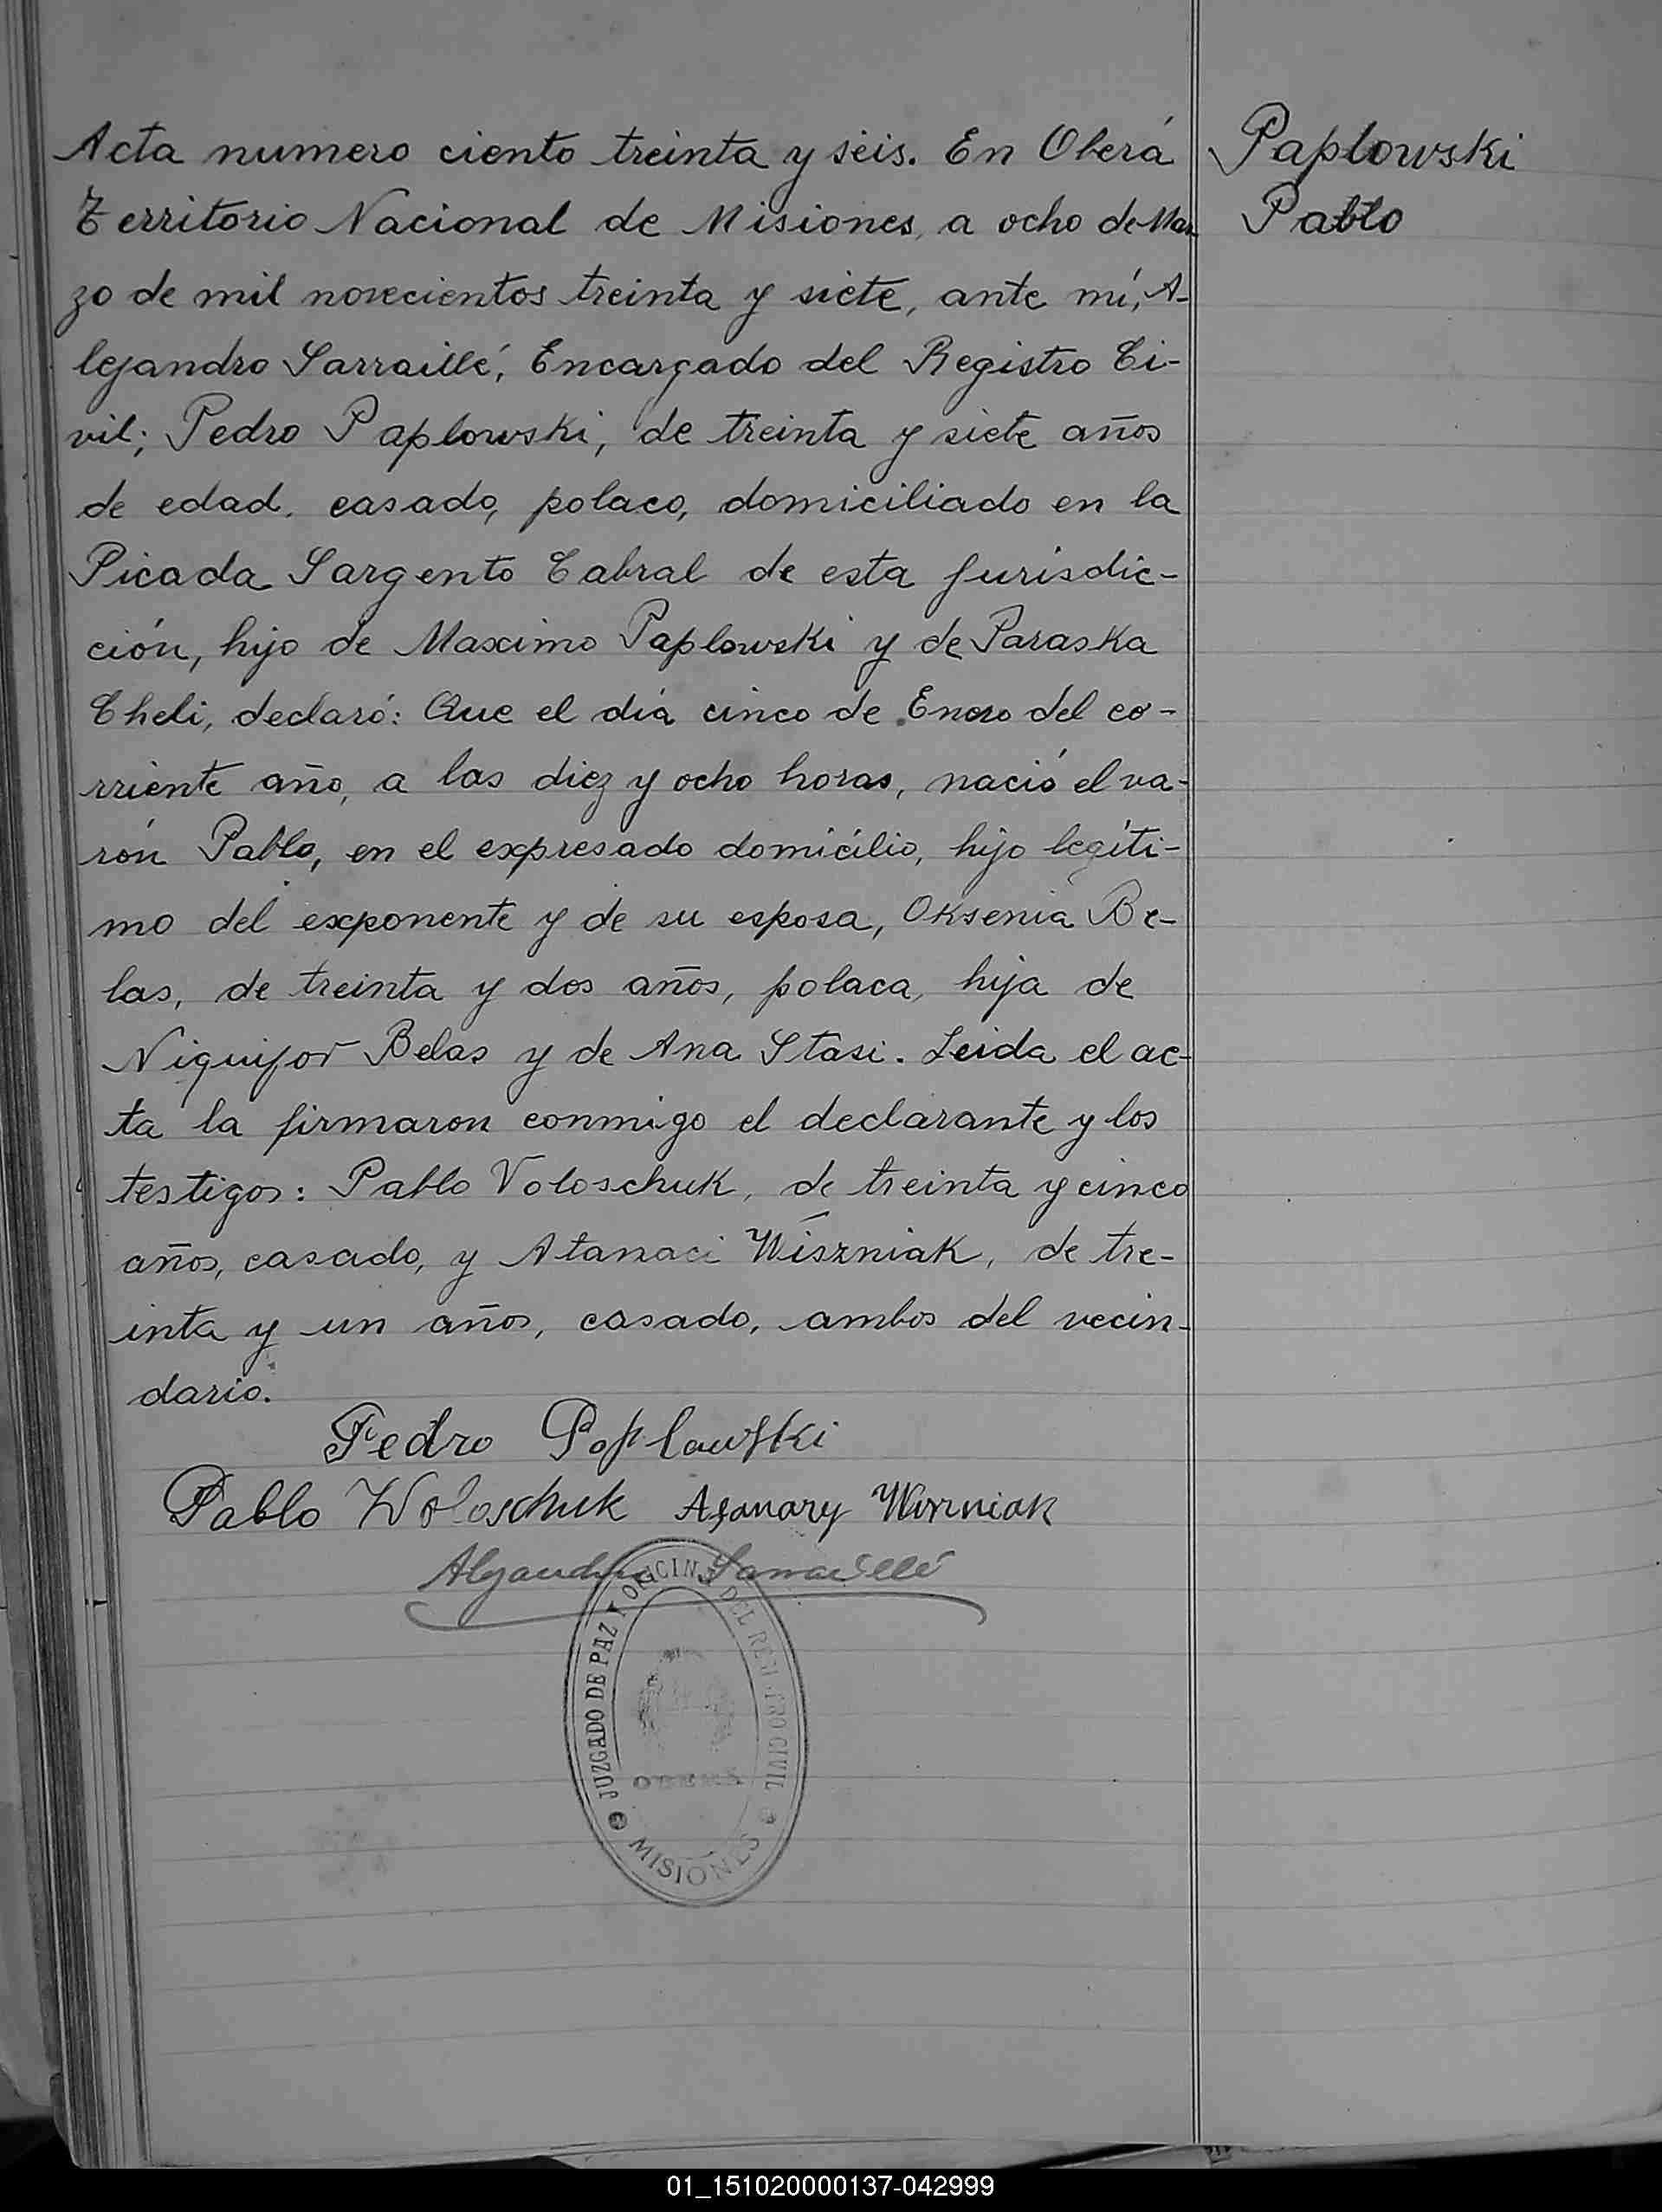 Acta numero ciento treinta y seis. En Oberá
Territorio Nacional de Misiones, a ocho de Mar
zo de mil novecientos treinta y siete, ante mí, A-
lejandro Sarraillé, Encargado del Registro Ci-
vil; Pedro Paplowski, de treinta y siete años
de edad, casado, polaco, domiciliado en la
Picada Sargento Cabral de esta jurisdic-
ción, hijo de Maximo Paplowski y de Paraska
Cheli, declaró: Que el día cinco de Enero del co-
rriente año, a las diez y ocho horas, nació el va-
rón Pablo, en el expresado domicilio, hijo legíti-
mo del exponente y de su esposa, Oksenia Be-
las, de treinta y dos años, polaca, hija de
Niquifor Belas y de Ana Stasi. Leida el ac-
ta la firmaron conmigo el declarante y los
testigos: Pablo Voloschuk, de treinta y cinco
años, casado, y Atanaci Wiszniak, de tre-
inta y un años, casado, ambos del vecin-
dario.
Paplowski
Pablo
Pedro Poplawski
Pablo Woloschuk Afanazy Wiszniak
Alejandro Sarraillé
JUZGADO DE PAZ Y OFICINA DEL REGISTRO CIVIL
OBERÁ
MISIONES
01_151020000137-042999